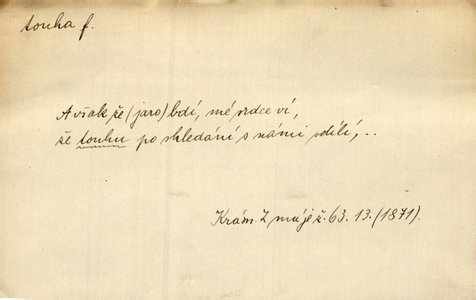 touha f.
A však že (jaro) bdí, mé srdce ví,
že touhu po shledání s námi sdílí, ..
Krám. Z máje ž. 63. 13. (1871).